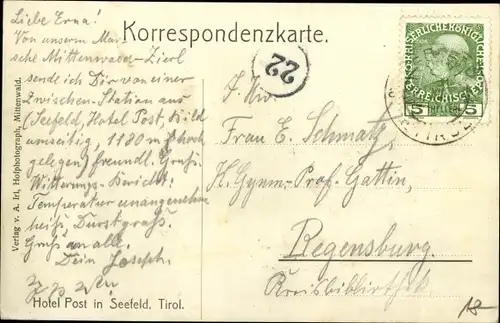 Korrespondenzkarte.
Liebe Erna!
Von unserm Mar
sche Mittenwald-Zierl
sende ich Dir von einer
Zwischen-Station aus
(Seefeld, Hotel Post, Bild
umseitig, 1180 m hoch
gelegen) freundl. Gruß.
Witterungs-Bericht:
Temperatur unangenehm
heiß, Durst groß.
Gruß an alle.
Dein Joseph.
22
Frau E. Schmatz,
K. Gymn.-Prof. Gattin,
Regensburg.
Kreisbibliothek
KAISERLICHE KÖNIGLICHE
ÖSTERREICHISCHE
5 5
TIROL
Verlag v. A. Irl, Hofphotograph, Mittenwald.
Hotel Post in Seefeld, Tirol.